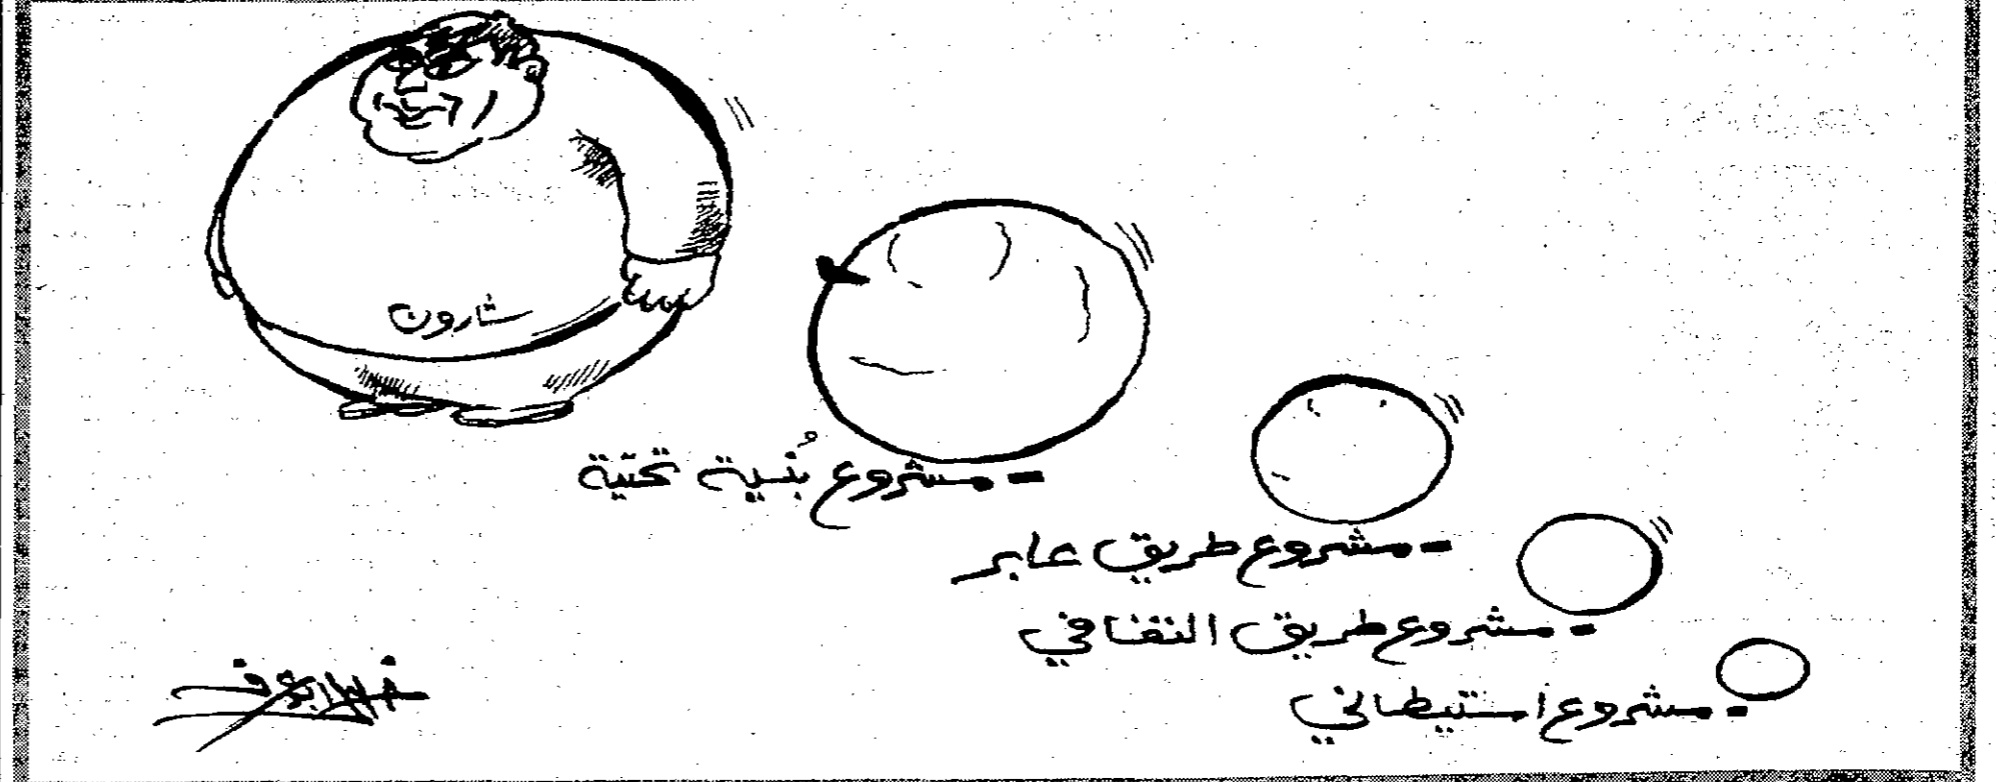 شارون
- مشروع بُنية تحتية
- مشروع طريق عابر
- مشروع طريق التفافي
- مشروع استيطاني